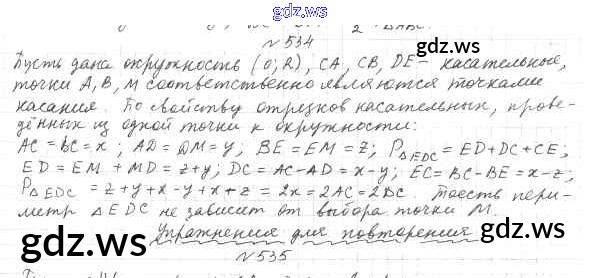 gdz.ws
2 ΔABC.
№534
Пусть дана окружность (O; R), CA, CB, DE – касательные,
точки A, B, M соответственно являются точками
касания. По свойству отрезков касательных, прове-
дённых из одной точки к окружности:
AC = BC = x ; AD = DM = y; BE = EM = z; PΔEDC = ED + DC + CE;
ED = EM + MD = z + y; DC = AC - AD = x - y; EC = BC - BE = x - z;
PΔEDC = z + y + x - y + x + z = 2x = 2AC = 2DC. То есть пери-
метр ΔEDC не зависит от выбора точки M.
Упражнения для повторения
gdz.ws
gdz.ws
№535